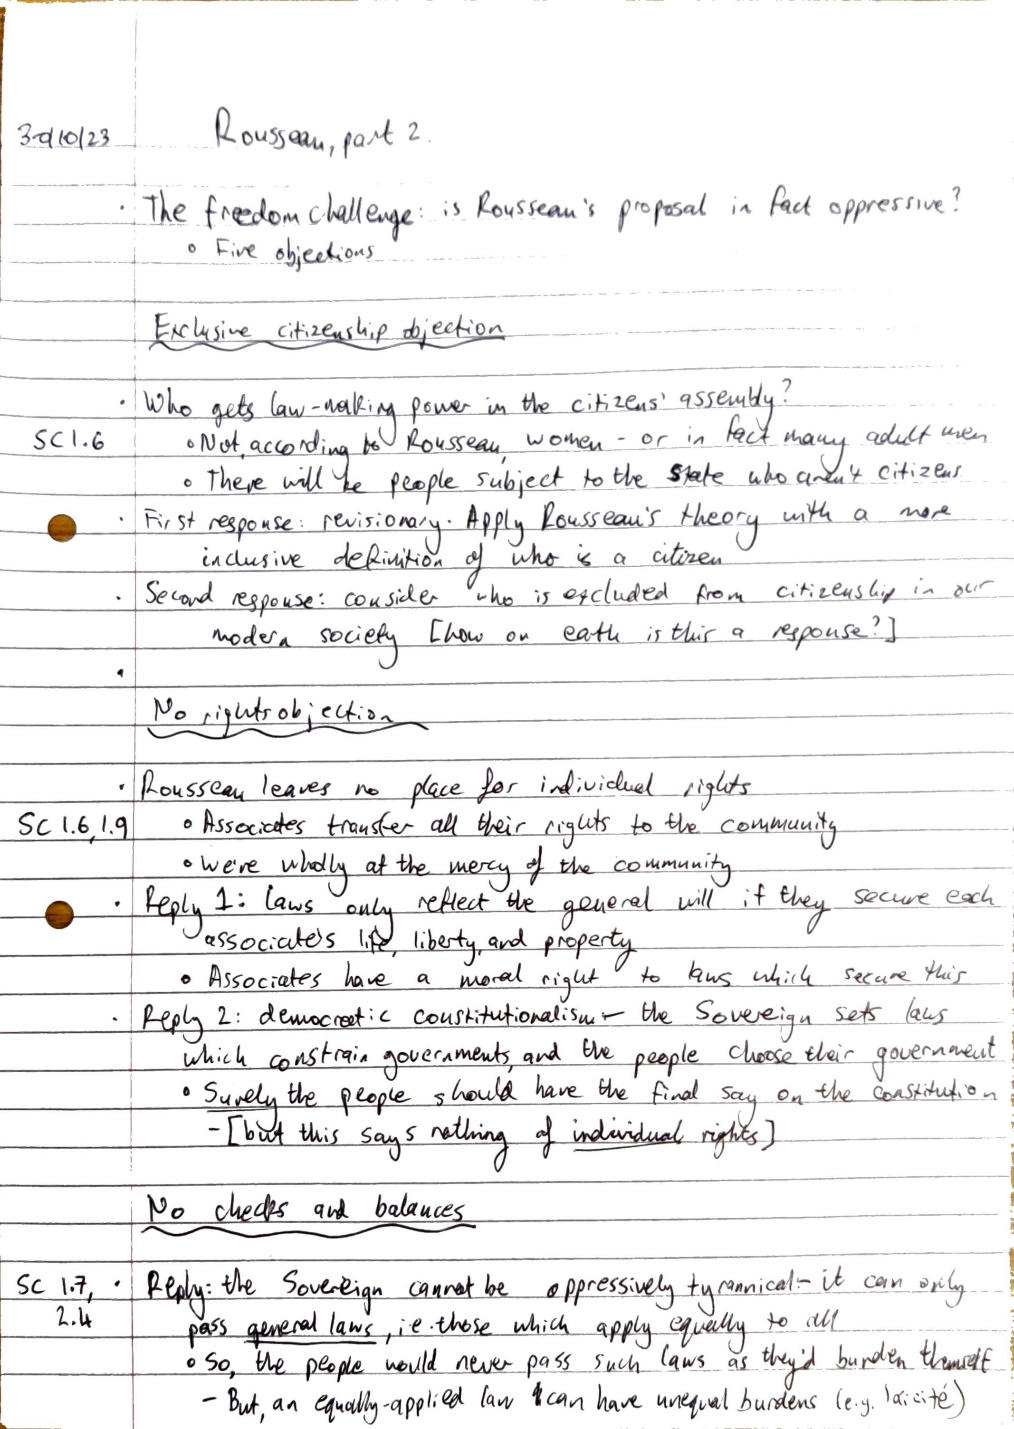 30/10/23 Rousseau, part 2.
· The freedom challenge: is Rousseau's proposal in fact oppressive?
∘ Five objections
Exclusive citizenship objection
· Who gets law-making power in the citizens' assembly?
SC1.6 ∘ Not, according to Rousseau, women - or in fact many adult men
∘ There will be people subject to the state who aren't citizens
· First response: revisionary. Apply Rousseau's theory with a more
inclusive definition of who is a citizen
· Second response: consider who is excluded from citizenship in our
modern society [how on earth is this a response?]
·
No rights objection
· Rousseau leaves no place for individual rights
SC 1.6, 1.9 ∘ Associates transfer all their rights to the community
∘ We're wholly at the mercy of the community
· Reply 1: laws only reflect the general will if they secure each
associate's life, liberty, and property
∘ Associates have a moral right to laws which secure this
· Reply 2: democratic constitutionalism - the Sovereign sets laws
which constrain governments, and the people choose their government
∘ Surely the people should have the final say on the constitution
- [but this says nothing of individual rights]
No checks and balances
SC 1.7, · Reply: the Sovereign cannot be oppressively tyrannical - it can only
2.4 pass general laws, i.e. those which apply equally to all
∘ So, the people would never pass such laws as they'd burden themself
- But, an equally-applied law can have unequal burdens (e.g. laïcité)